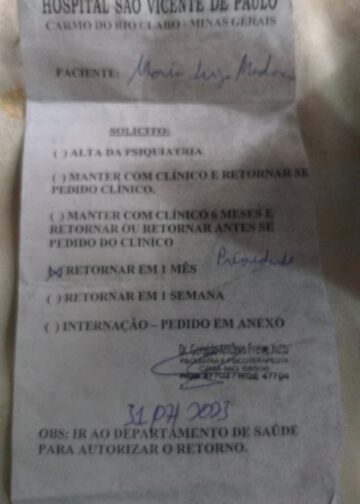 HOSPITAL SÃO VICENTE DE PAULO
CARMO DO RIO CLARO - MINAS GERAIS
PACIENTE: Maria Luiza
SOLICITO:
( ) ALTA DA PSIQUIATRIA
( ) MANTER COM CLÍNICO E RETORNAR SE
PEDIDO CLÍNICO.
( ) MANTER COM CLÍNICO 6 MESES E
RETORNAR OU RETORNAR ANTES SE
PEDIDO DO CLINICO
Prioridade
(X) RETORNAR EM 1 MÊS
( ) RETORNAR EM 1 SEMANA
( ) INTERNAÇÃO – PEDIDO EM ANEXO
Dr. Geraldo Antônio Freire
PSIQUIATRIA E PSICOTERAPEUTA
CRM-MG 68506
31 07 2023
OBS: IR AO DEPARTAMENTO DE SAÚDE
PARA AUTORIZAR O RETORNO.